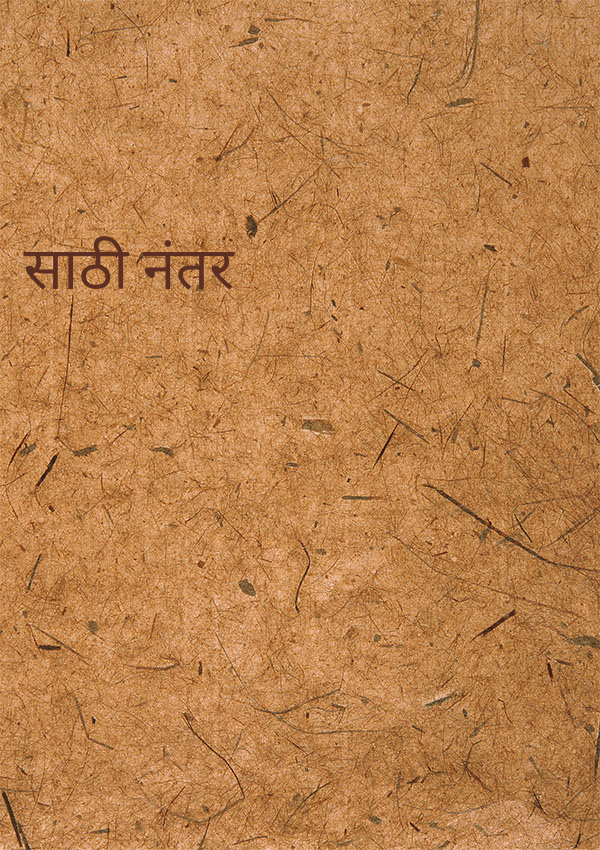 साठी नंतर